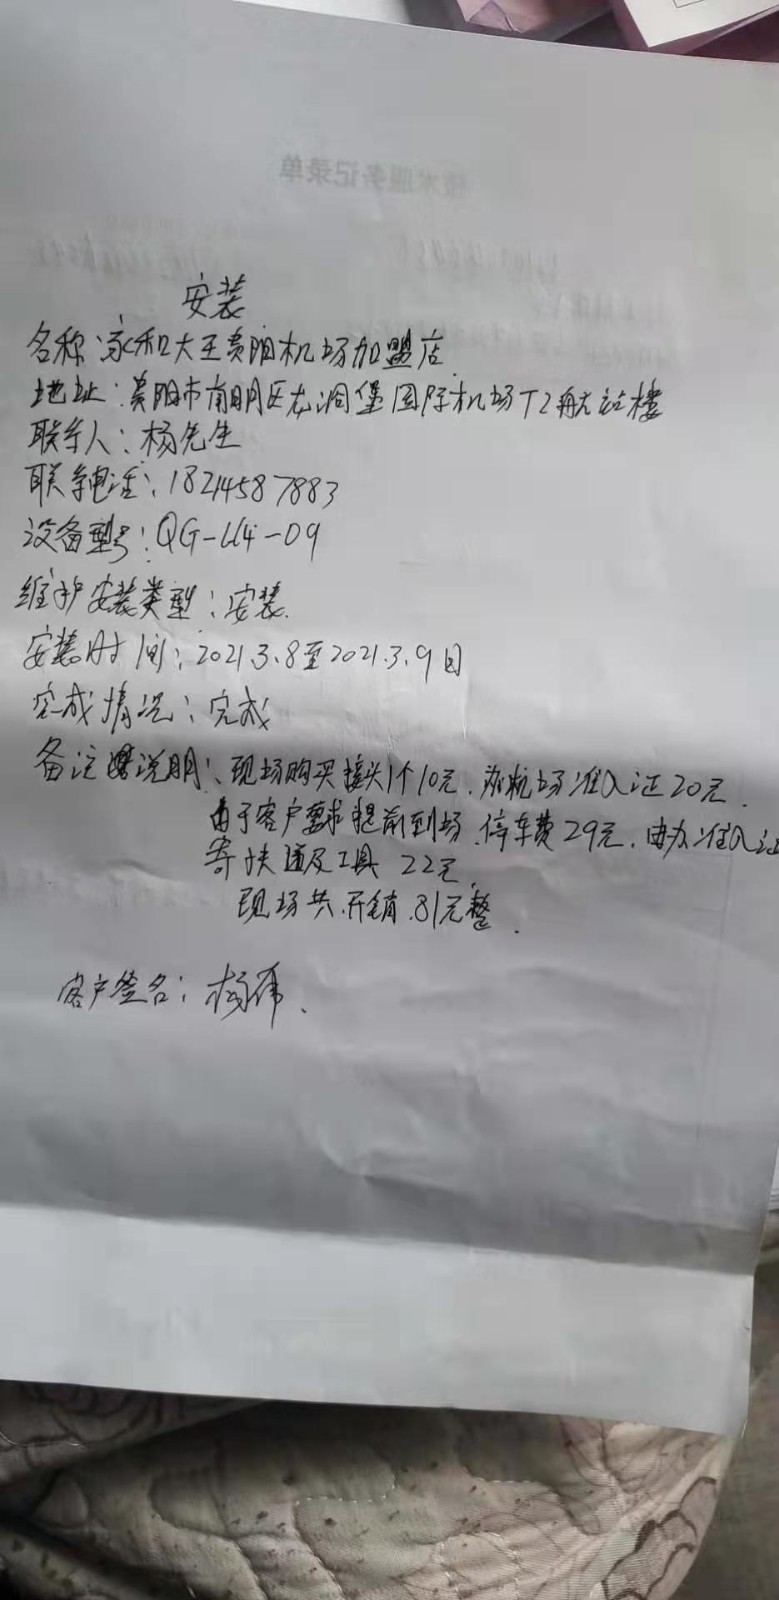 安装
名称:永和大王贵阳机场加盟店
地址:贵阳市南明区龙洞堡国际机场T2航站楼
联系人:杨先生
联系电话:18214587883
设备型号:QG-U4-09
维护安装类型:安装.
安装时间:2021.3.8至2021.3.9日
完成情况:完成
备注说明:现场购买接头1个10元.办机场准入证20元.
由于客户要求提前到场.停车费29元.由办准入证
寄快递及工具 22元.
现场共开销.81元整.
客户签名:杨伟.
技术服务记录单